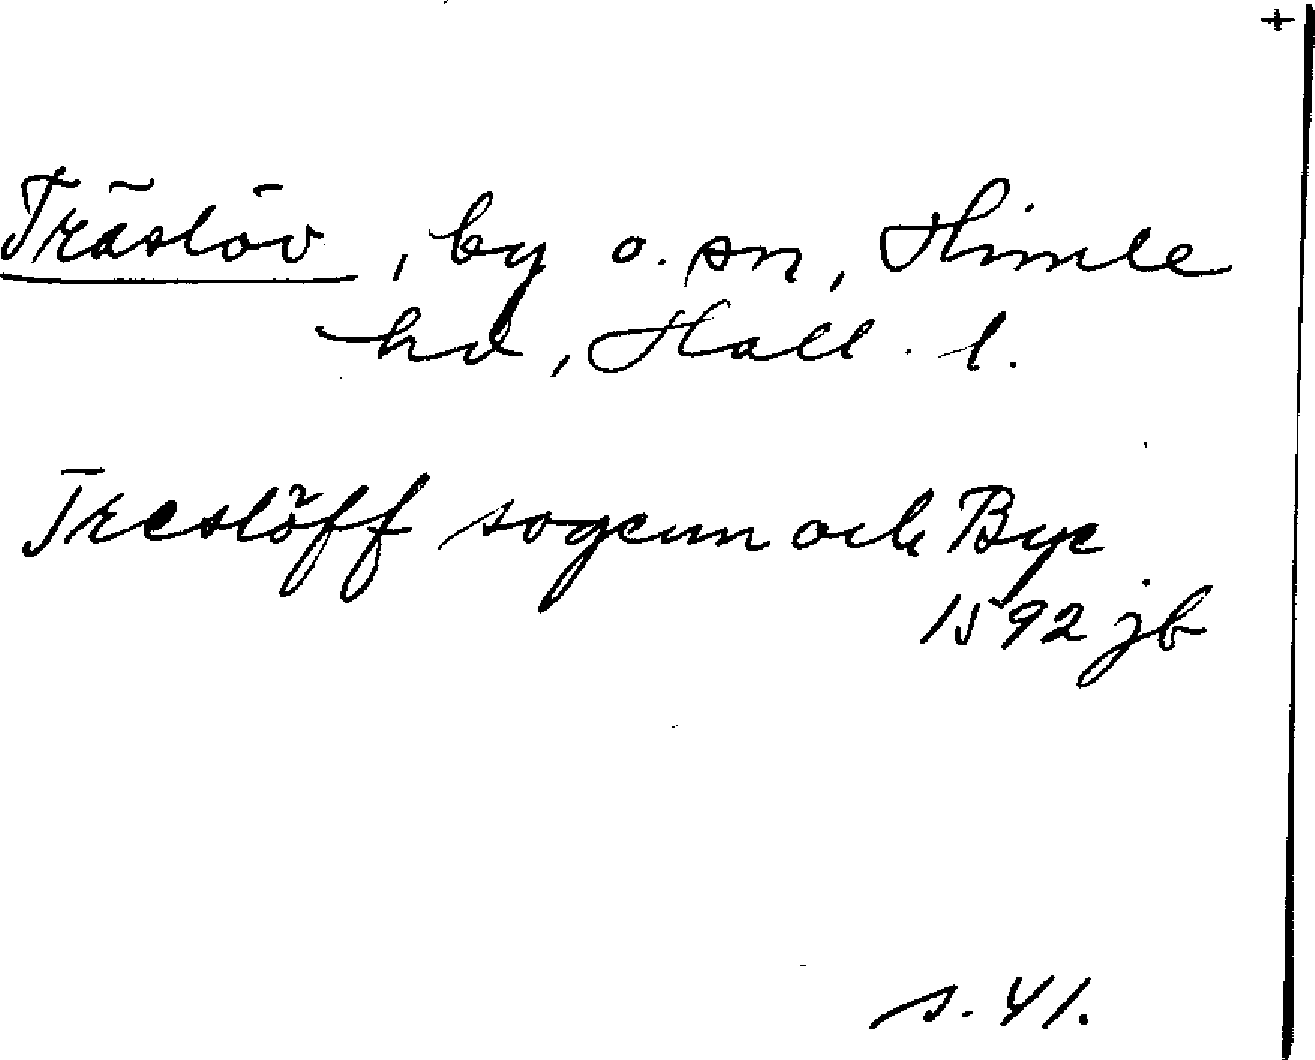 +
Träslöv, by o. sn, Himle
hd, Hall. l.
Treslöff sogenn och Bye
1592 jb
s. 41.